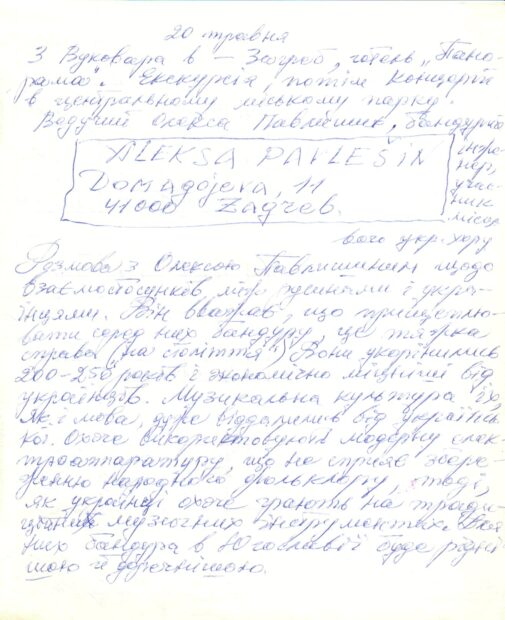 20 травня
З Вуковара в — Загреб, готель „Пано-
рама". Екскурсія, потім концерт
в центральному міському парку.
Ведучий Олекса Павлешин, бандурист
інже-
нер,
учас-
ник
місце-
вого укр. хору
ALEKSA PAVLEŠIN
Domagojeva, 11
41000 Zagreb.
Розмова з Олексою Павлишиним щодо
взаємостосунків між русинами і укра-
їнцями. Він вважає, що прищеплю-
вати серед них бандуру, це тяжка
справа (на століття!) Вони укорінились
200-250 років і економічно міцніші від
українців. Музикальна культура їх,
як і мова, дуже віддалились від українсь-
кої. Охоче використовують модерну елек-
троапаратуру, що не сприяє збере-
женню народного фольклору, тоді,
як українці охоче грають на тради-
ційних музичних інструментах. Для
них бандура в Югославії буде рідні-
шою й доречнішою.